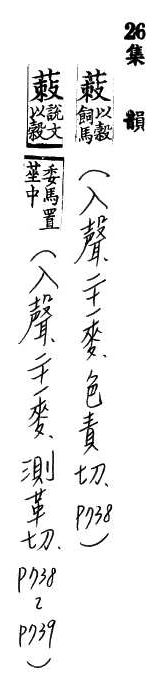 26 集韻
蔌 以穀飼馬（入聲、二十一麥、色責切、P738）
蔌 說文以穀委馬置莝中（入聲、二十一麥、測革切、P738～P739）